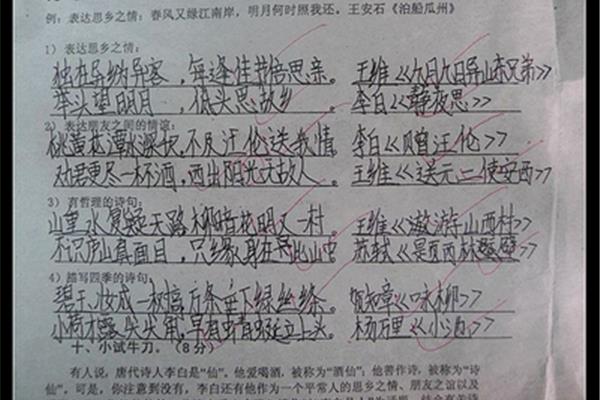 例：表达思乡之情：春风又绿江南岸，明月何时照我还。王安石《泊船瓜州》
1）表达思乡之情：
独在异乡为异客，每逢佳节倍思亲。王维《九月九日异山东兄弟》
举头望明月，低头思故乡。李白《静夜思》
2）表达朋友之间的情谊：
桃花潭水深 ，不及汪伦送我情。李白《赠汪伦》
劝君更尽一杯酒，西出阳光无故人。王维《送元二使安西》
3）有哲理的诗句：
山重水复疑无路 柳暗花明又一村。王维《游山西村》
不识庐山真面目，只缘身在此山 苏轼《 西林壁》
4）描写四季的诗句：
碧玉妆成一树高 万条垂下绿丝绦。贺知章《咏柳》
小荷才露尖尖角，早有蜻蜓立上头。杨万里《小池》
十、小试牛刀。（8分）
有人说，唐代诗人李白是“仙”。他爱喝酒，被称为“酒仙”；他善作诗，被称为“诗
仙”。可是，你注意到没有，李白还有他作为一个平常人的思乡之情、朋友之谊以及